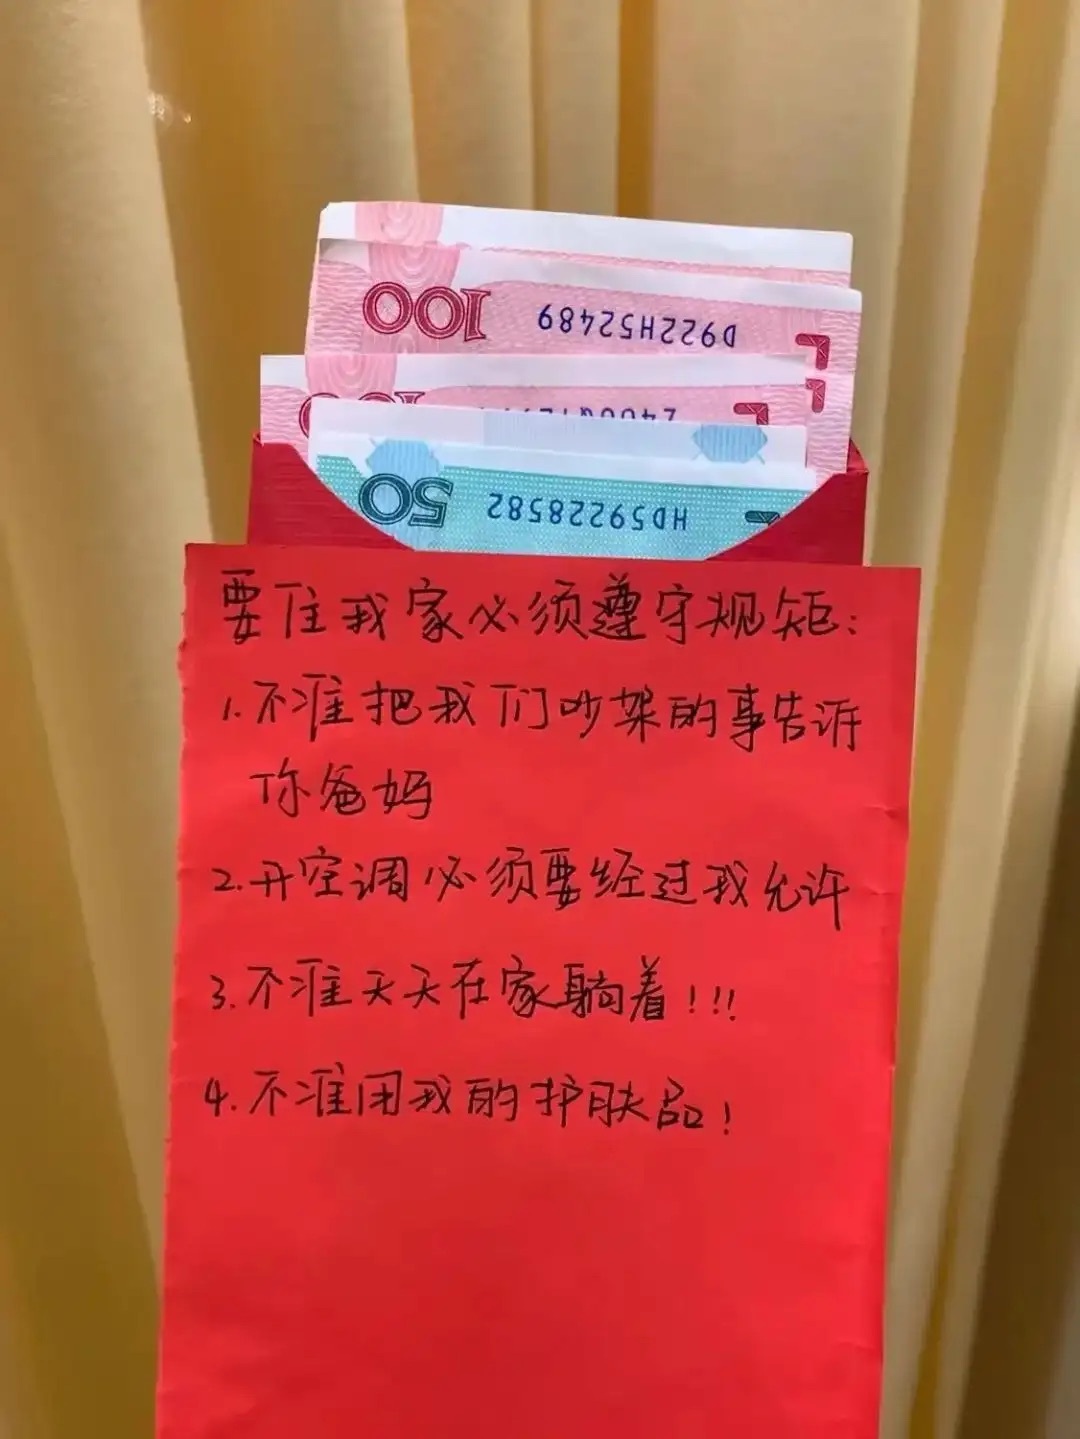 100
D922H52489
50
HD59228582
要住我家必须遵守规矩:
1.不准把我们吵架的事告诉
你爸妈
2.开空调必须要经过我允许
3.不准天天在家躺着!!!
4.不准用我的护肤品!